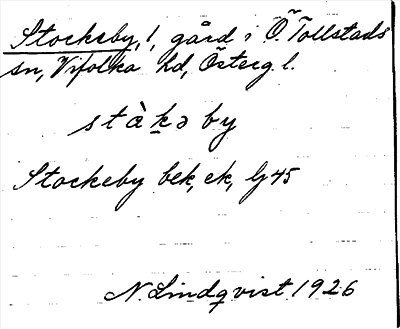 Stockeby, !, gård i Ö. Tollstads
sn, Vifolka hd, Österg l.
stàkə by
Stockeby bek, ek, Lj 45
N. Lindqvist 1926